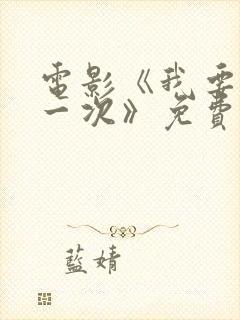 電影《我要
一次》免費
藍婧